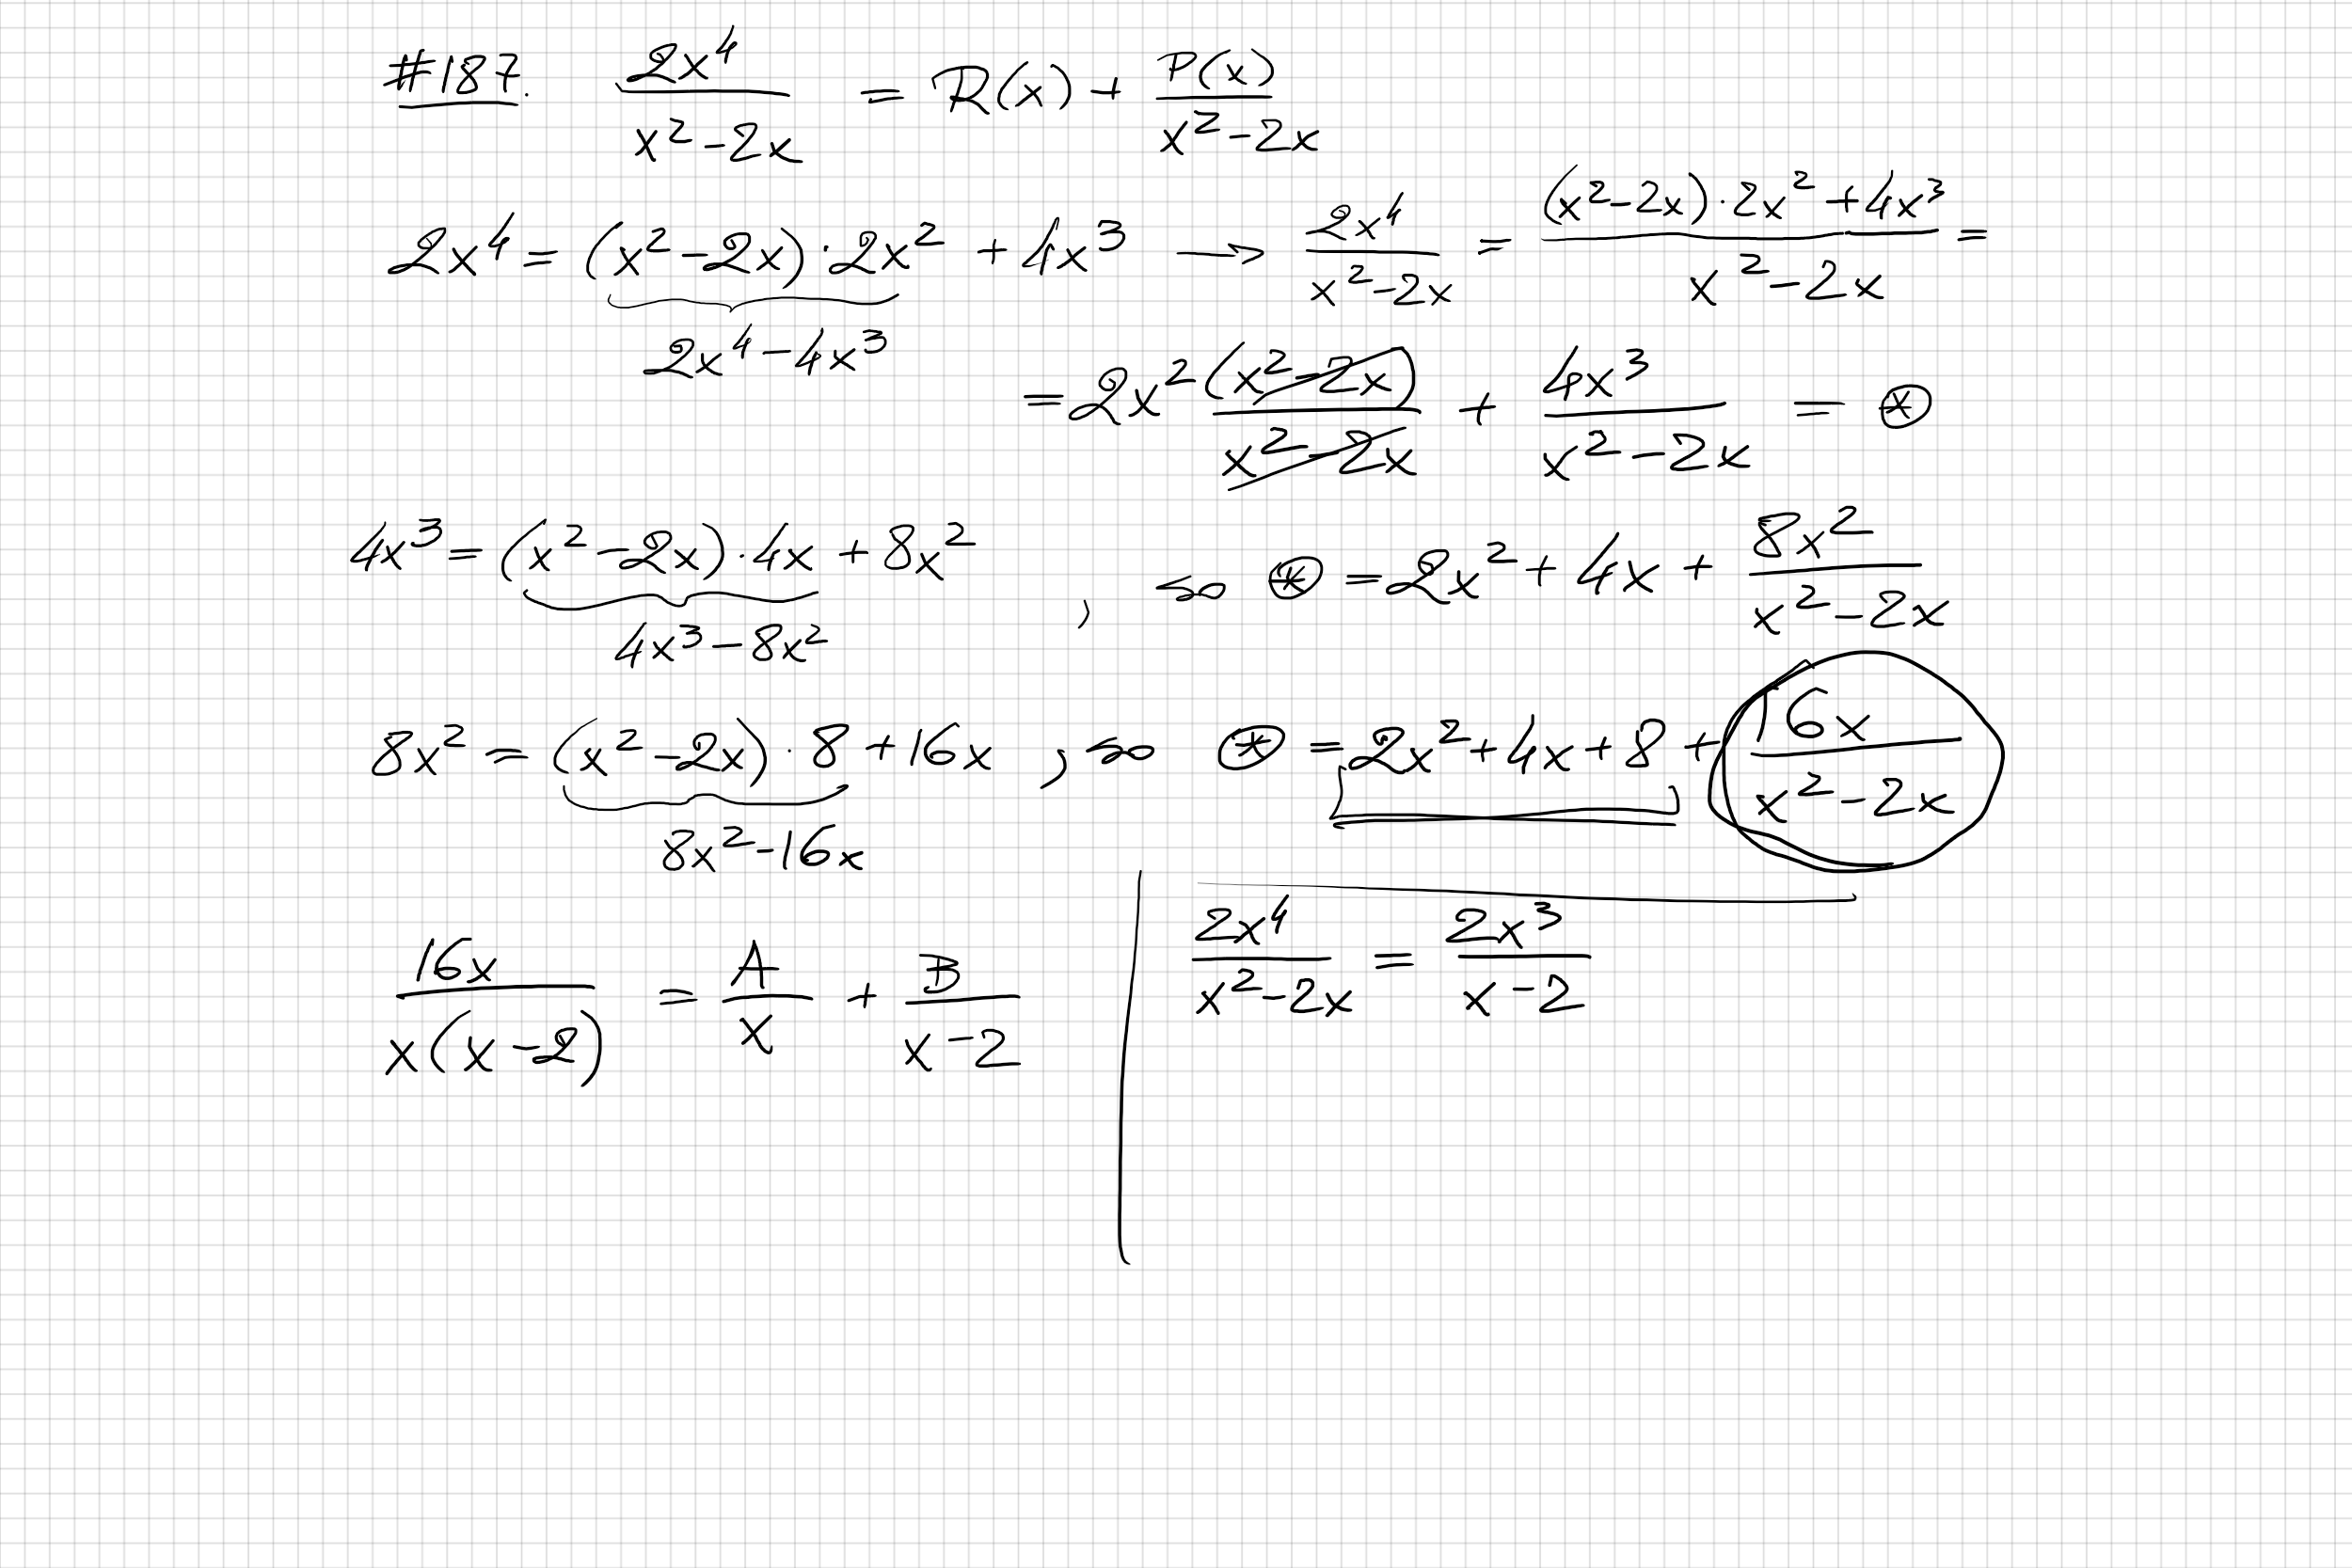 #187. 2x⁴/(x²-2x) = R(x) + P(x)/(x²-2x)
2x⁴ = (x²-2x)·2x² + 4x³ → 2x⁴/(x²-2x) = ((x²-2x)·2x² + 4x³)/(x²-2x) =
2x⁴-4x³
= 2x² (x²-2x)/(x²-2x) + 4x³/(x²-2x) = ⊛
4x³ = (x²-2x)·4x + 8x² , so ⊛ = 2x² + 4x + 8x²/(x²-2x)
4x³-8x²
8x² = (x²-2x)·8 + 16x , so ⊛ = 2x² + 4x + 8 + 16x/(x²-2x)
8x²-16x
16x/(x(x-2)) = A/x + B/(x-2)
2x⁴/(x²-2x) = 2x³/(x-2)